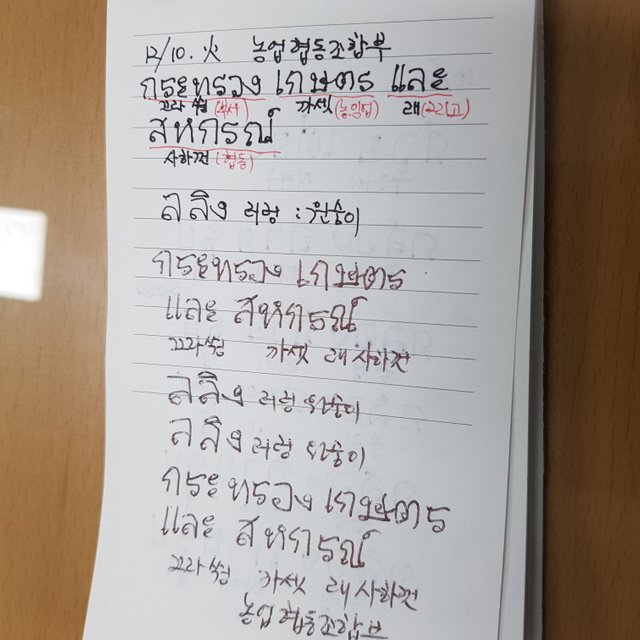 12/10. 火 농업협동조합부
กระทรวง เกษตร และ
끄라 쑹 (부서) 까쎗 (농업) 래 (그리고)
สหกรณ์
사하껀 (협동)
ล ลิง 러링 : 원숭이
กระทรวง เกษตร
และ สหกรณ์
끄라쑹 까쎗 래 사하껀
ล ลิง 러링 원숭이
ล ลิง 러링 원숭이
กระทรวง เกษตร
และ สหกรณ์
끄라쑹 까쎗 래 사하껀
농업협동조합부